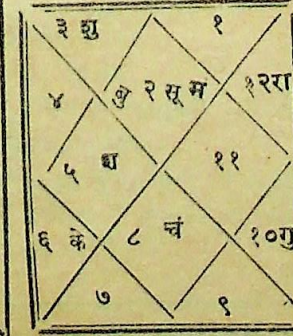 ३ शु १
४ बु २ सू मं १२रा
५ श ११
६ के ८ चं १०गु
७ ९